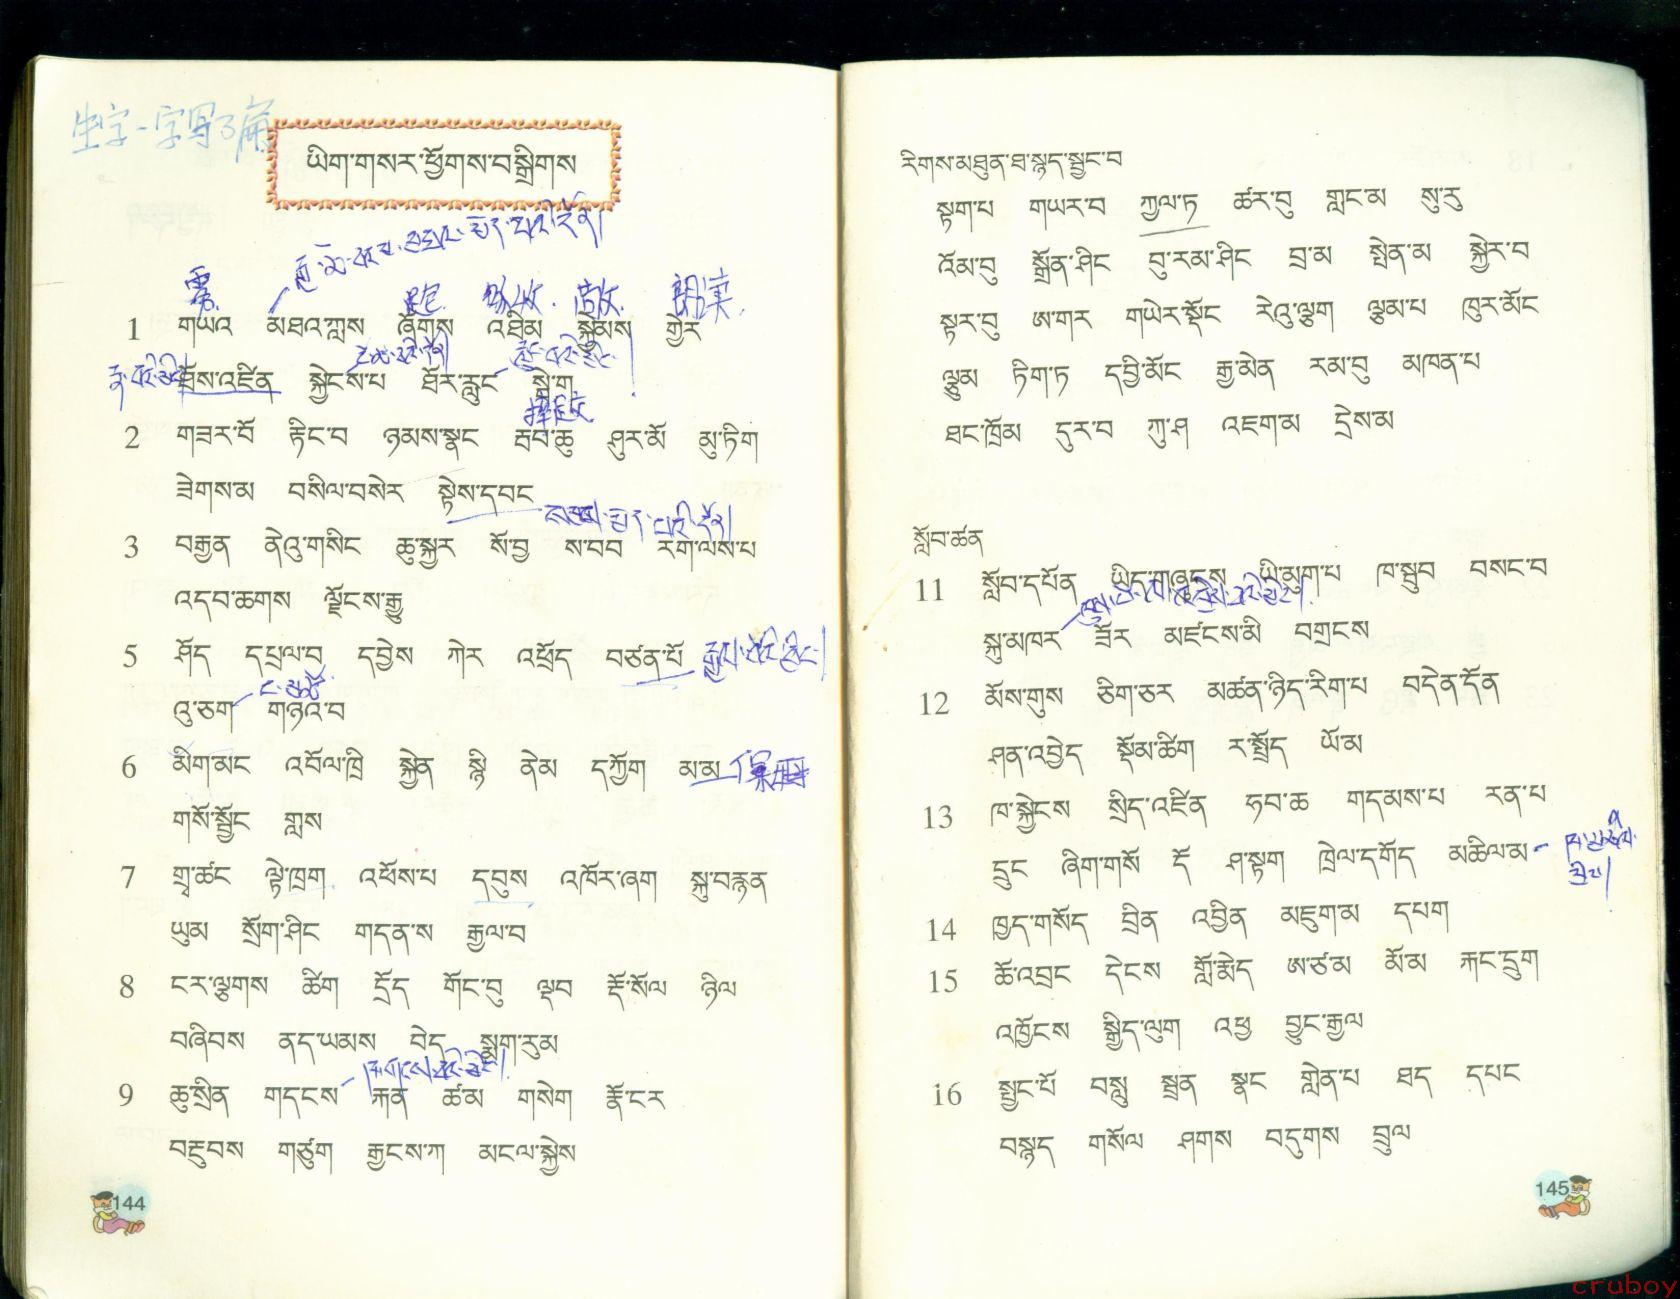 生字一字写3扁
ཡིག་གསར་ཕྱོགས་བསྒྲིགས
1 གཡའ མཐའ་ཀླས ཞོགས འཐིམ སྐྱེམས གྱེར
ཐོས་འཛིན སྐྱེངས་པ ཐོར་རླུང སྒྲེག
2 གཟར་པོ རྟིང་བ ཉམས་སྣང རྦབ་ཆུ ཤུར་མོ མུ་ཏིག
ཟེགས་མ བསིལ་བསེར སྟེས་དབང
3 བརྒྱན ནེའུ་གསིང ཆུ་སྐྱར སོ་བྱ ས་བབ རག་ལས་པ
འདབ་ཆགས ལྗོངས་རྒྱུ
5 ཤོད དཔྲལ་བ དབྱེས ཀེར འཕྲོད བཙན་པོ
འུ་ཅག གཉའ་བ
6 མིག་མང འབོལ་ཁྲི སྐྱེན སྙི ནེམ དཀྱོག མ་མ
གསོ་སྦྱོང གླས
7 གྲྭ་ཚང ལྟེ་ཁྲག འཕོས་པ དབུས འཁོར་ཞག སྐུ་བརྙན
ཡུམ སྲོག་ཤིང གདན་ས རྒྱལ་བ
8 ངར་ལྕགས ཚིག དྲོད གོང་བུ ལྡབ རྡོ་སོལ ཉིལ
བཞིབས ནད་ཡམས བེད སྨག་རུམ
9 ཆུ་སྲིན གདངས རྐན ཚ་མ གསེག རྣོ་ངར
བརྡབས གཙུག རྒྱངས་ཀ མངལ་སྐྱེས
144
རིགས་མཐུན་ཐ་སྙད་སྦྱང་བ
སྟག་པ གཡར་བ ཀྱལ་ཏ ཚར་བུ གླང་མ སུ་རུ
འོམ་བུ སྒྲོན་ཤིང བུ་རམ་ཤིང བྲ་མ སྤེན་མ སྐྱེར་བ
སྟར་བུ ཨ་གར གཡེར་སྡོང རེའུ་ལྕག ལྕམ་པ ཁུར་མོང
ལྕུམ ཏིག་ཏ དབྱི་མོང རྒྱ་མེན རམ་བུ མཁན་པ
ཐང་ཁྲོམ དུར་བ ཀུ་ཤ འཇག་མ དྲེས་མ
སློབ་ཚན
11 སློབ་དཔོན ཡིད་གཞུངས ཡི་མུག་པ ཁ་སྦུབ བསང་བ
སྐུ་མཁར ཟོར མཛངས་མི བགྲངས
12 མོས་གུས ཅིག་ཅར མཚན་ཉིད་རིག་པ བདེན་དོན
ཤན་འབྱེད སྡོམ་ཚིག ར་སྤྲོད ཡོ་མ
13 ཁ་སྐྱེངས སྲིད་འཛིན ཧབ་ཆ གདམས་པ རན་པ
དྲུང ཞིག་གསོ དོ ཤ་སྟག ཁྲེལ་དགོད མཆིལ་མ
14 ཁྱད་གསོད བྲིན འབྱིན མཇུག་མ དཔག
15 ཚོ་འབྲང དེངས གློ་རྨེད ཨ་ཙ་མ མོ་མ རྐང་དྲུག
འཁྱོངས སྒྱིད་ལུག འཕྱ བྱུང་རྒྱལ
16 སྤྱང་པོ བསླུ སྦྲན སྣང གླེན་པ ཐད དཔང
བསྙད གསོལ ཤགས བདུགས བྲུལ
145
cruboy